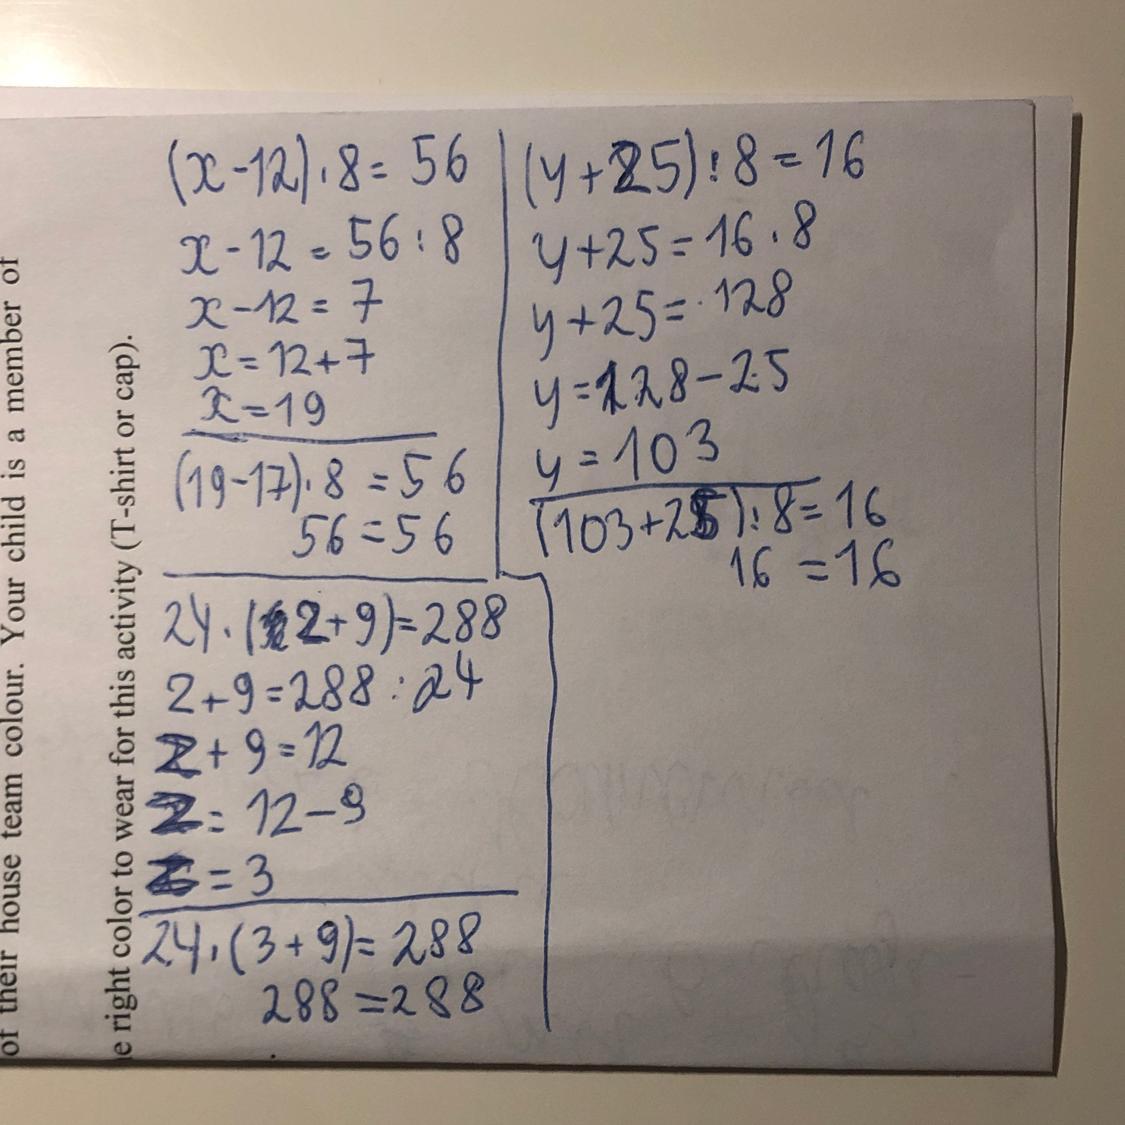 (x-12)·8=56
x-12=56:8
x-12=7
x=12+7
x=19
(19-17)·8=56
56=56
(y+25):8=16
y+25=16·8
y+25=128
y=128-25
y=103
(103+25):8=16
16=16
24·(z+9)=288
z+9=288:24
z+9=12
z=12-9
z=3
24·(3+9)=288
288=288
of their house team colour. Your child is a member of
e right color to wear for this activity (T-shirt or cap).